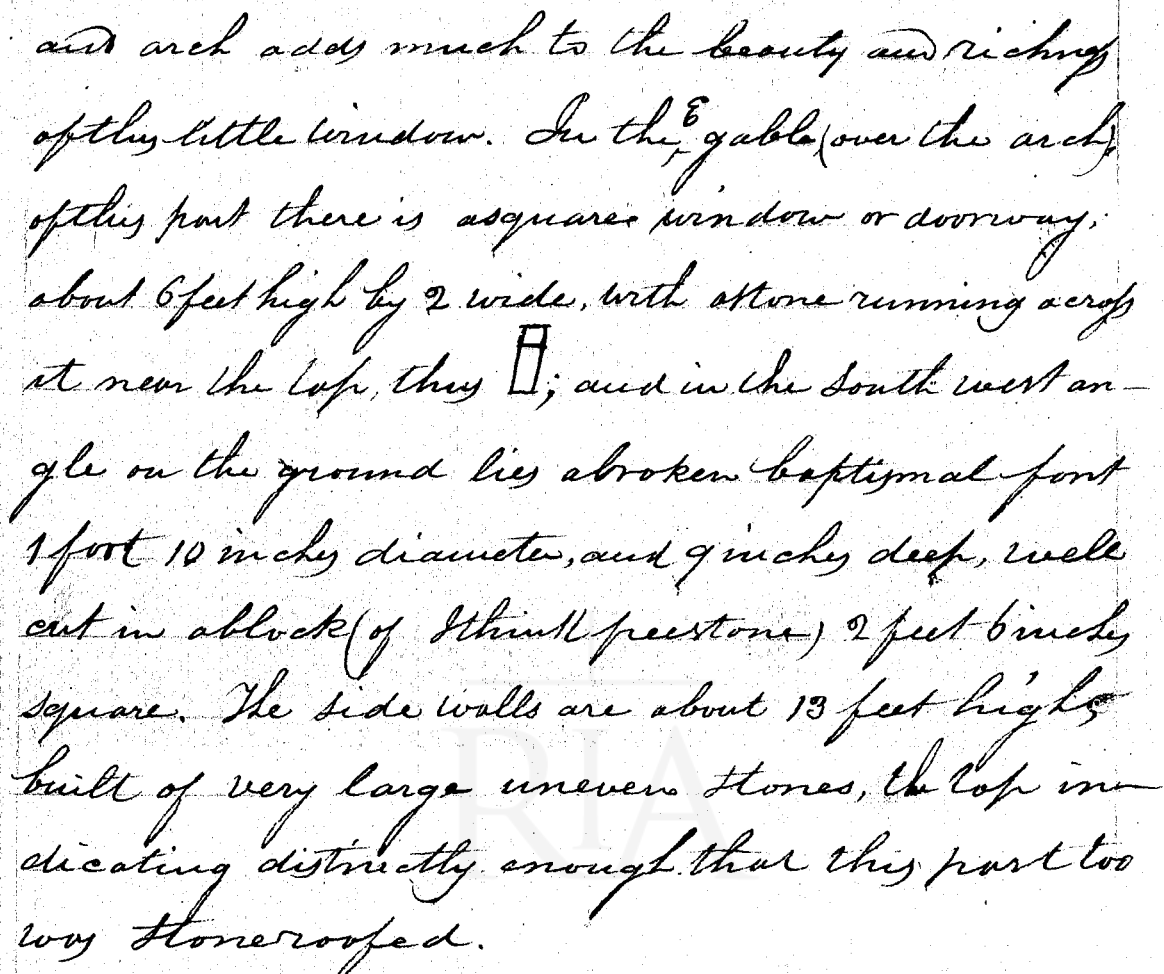 and arch adds much to the beauty and richness
of this little window. In the E gable (over the arch),
of this part there is a square window or doorway,
about 6 feet high by 2 wide, with a stone running across
it near the top, thus ; and in the South west an-
gle on the ground lies a broken baptismal font
1 foot 10 inches diameter, and 9 inches deep, well
cut in a block (of I think freestone) 2 feet 6 inches
square. The side walls are about 13 feet high,
built of very large uneven stones, the top in-
dicating distinctly enough that this part too
was stoneroofed.
RIA